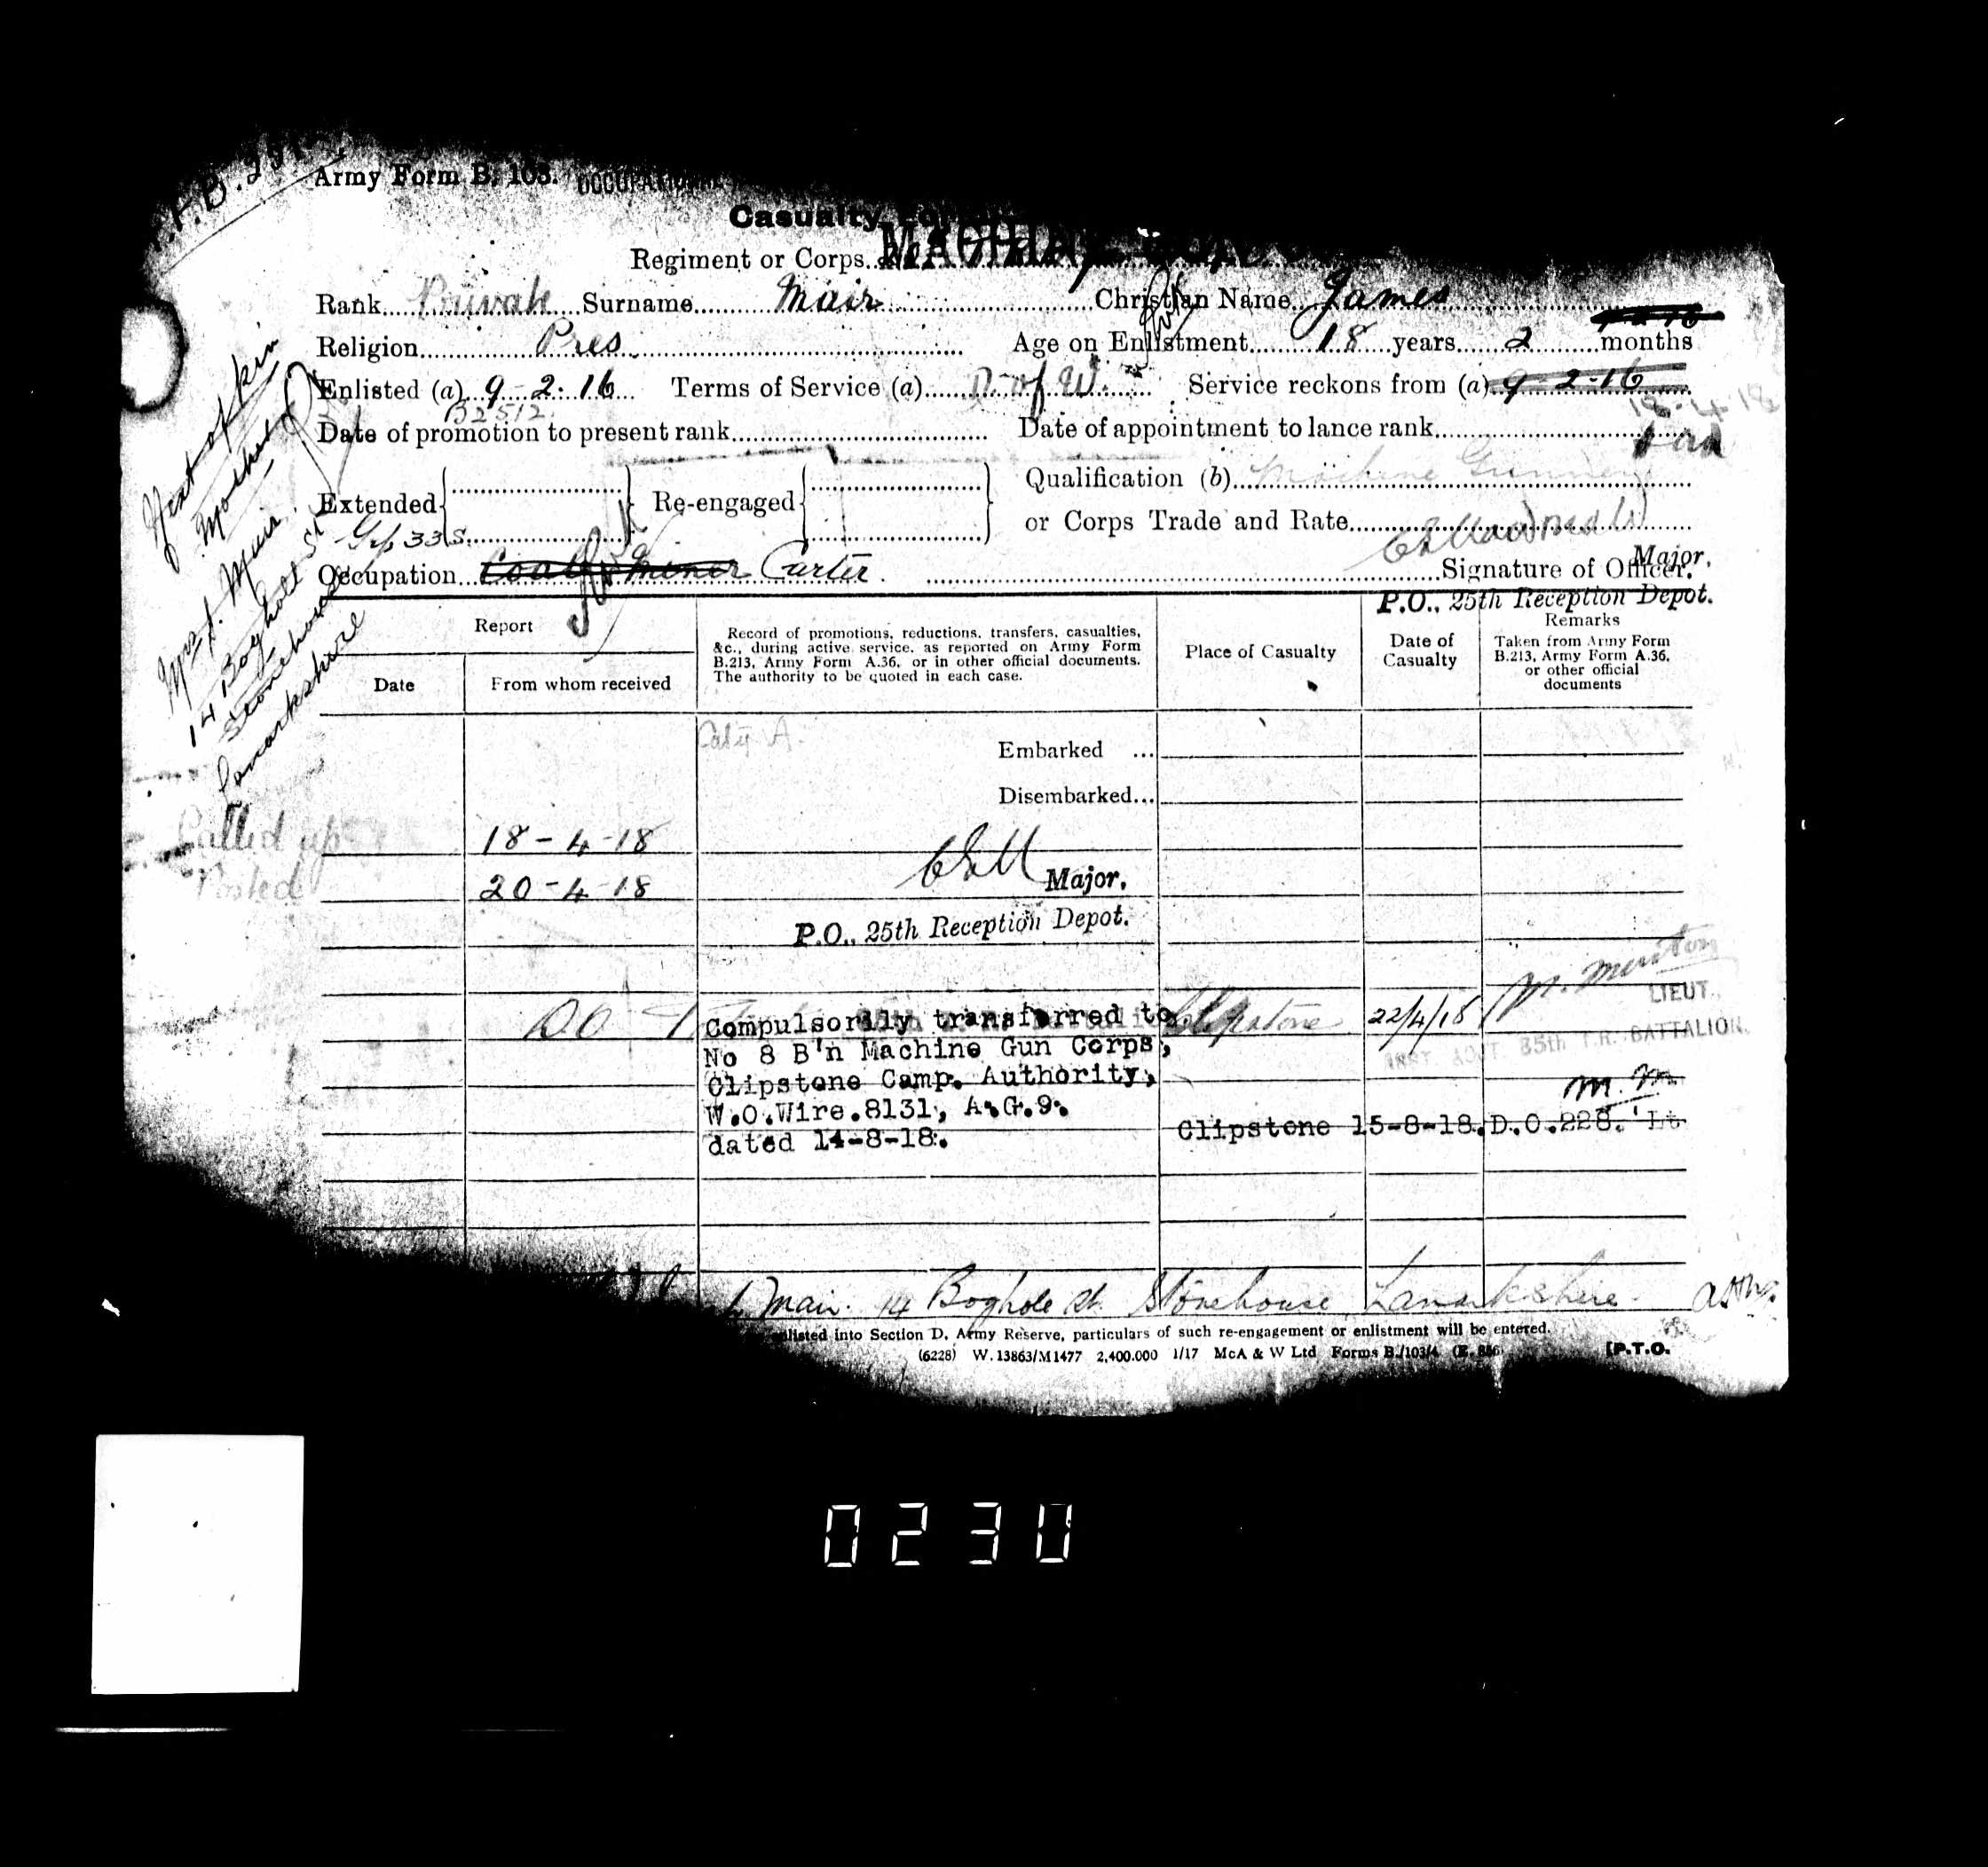 Army Form B. 103.
Casualty
Regiment or Corps
Rank Private Surname Mair Christian Name James
Religion Pres Age on Enlistment 18 years 2 months
Enlisted (a) 9-2-16 Terms of Service (a) D. of W. Service reckons from (a) 9-2-16
18-4-18
B2512
Date of promotion to present rank Date of appointment to lance rank
Extended Re-engaged Qualification (b) Machine Gunner
or Corps Trade and Rate
Grp 33
Occupation Coal Miner Carter Signature of Officer.
Major.
P.O., 25th Reception Depot.
Next of kin
Mother
Mrs J. Mair
14 Boghole St
Stonehouse
Lanarkshire
Report
Date
From whom received
Record of promotions, reductions, transfers, casualties,
&c., during active service, as reported on Army Form
B.213, Army Form A.36, or in other official documents.
The authority to be quoted in each case.
Place of Casualty
Date of
Casualty
Remarks
Taken from Army Form
B.213, Army Form A.36,
or other official
documents
Caty A.
Embarked ...
Disembarked...
Called up 18-4-18
Posted 20-4-18
Major.
P.O., 25th Reception Depot.
DO Clipstone 22/4/18
LIEUT.
85th T.R. BATTALION.
Compulsorily transferred to
No 8 B'n Machine Gun Corps,
Clipstone Camp. Authority,
W.O.Wire.8131, A.G.9.
dated 14-8-18.
Clipstone 15-8-18. D.O.228. Lt
M.M.
Mair 14 Boghole St. Stonehouse Lanarkshire.
enlisted into Section D, Army Reserve, particulars of such re-engagement or enlistment will be entered.
(6228) W.13863/M1477 2,400,000 1/17 McA & W Ltd Forms B./103/4
[P.T.O.
0230